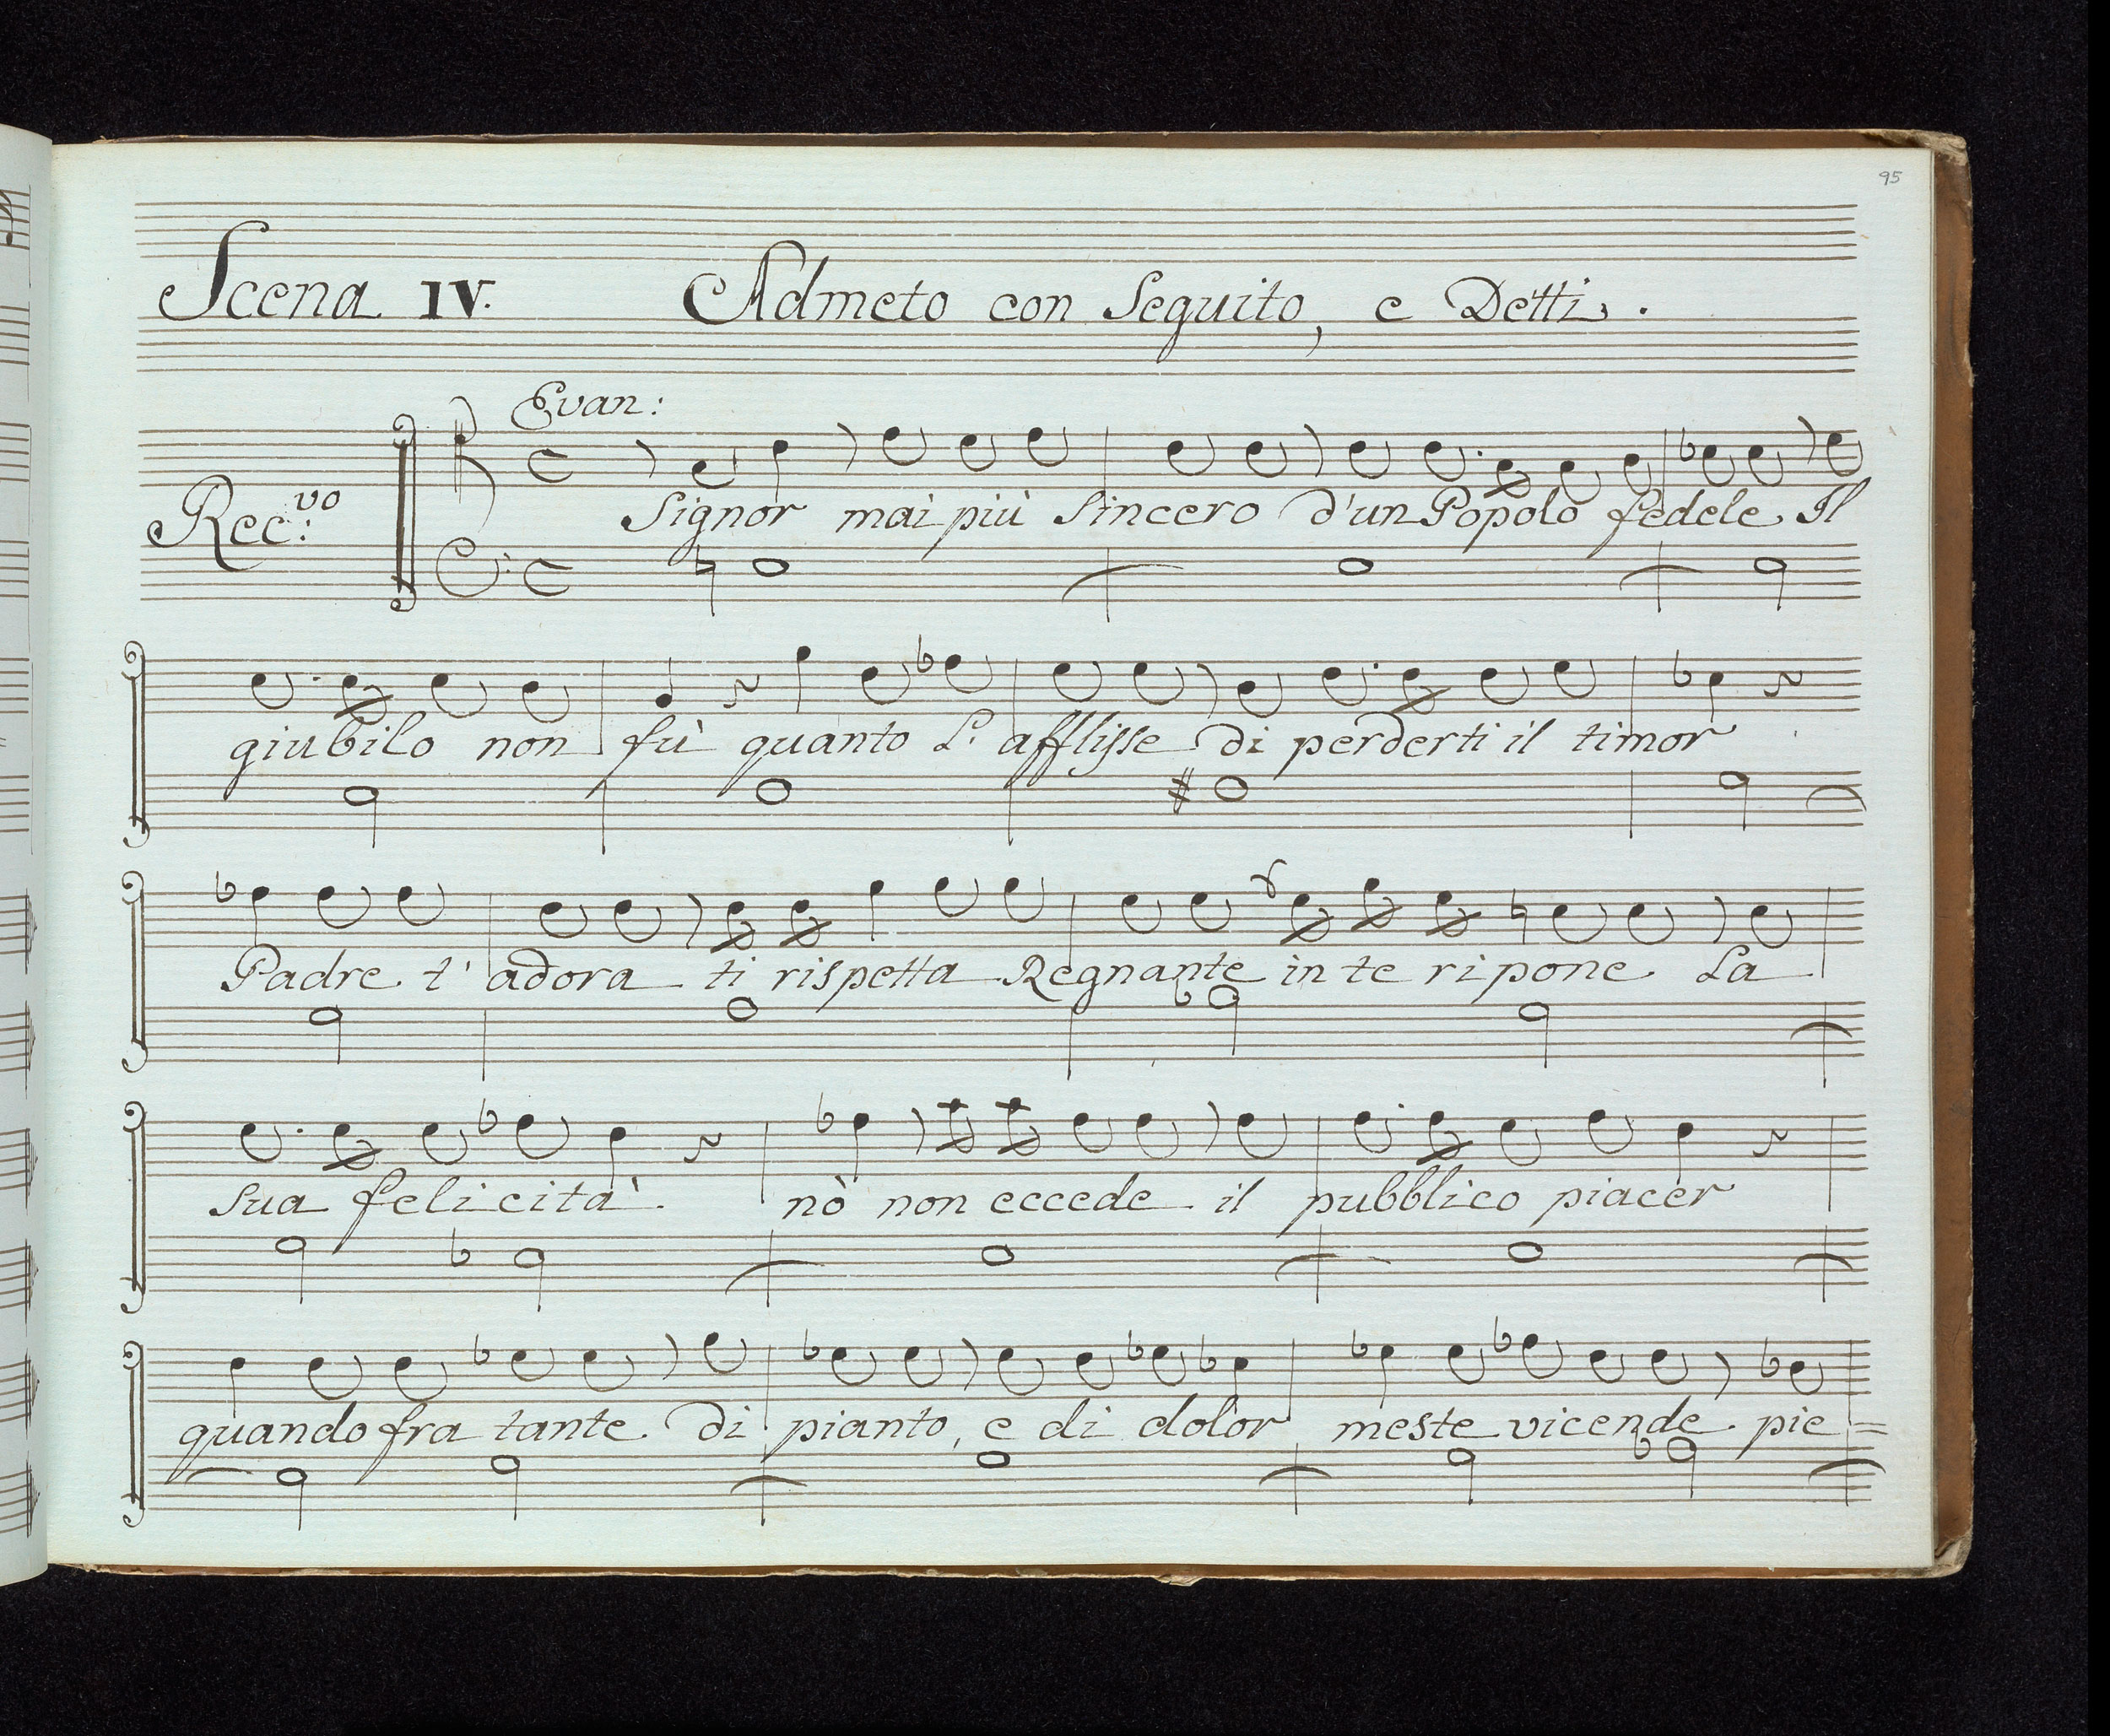 95
Scena IV. Admeto con Seguito, e Detti.
Evan:
Rec:vo
Signor mai più sincero d'un Popolo fedele Il
giubilo non fù quanto L' afflisse di perderti il timor
Padre t' adora ti rispetta Regnante in te ripone La
sua felicità. nò non eccede il pubblico piacer
quando fra tante di pianto, e di dolor meste vicende pie=